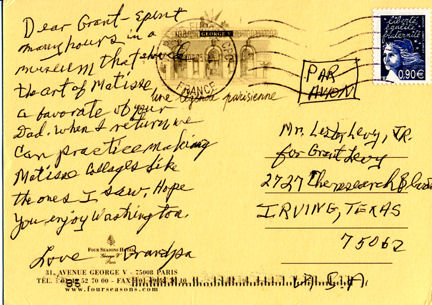 Dear Grant - Spent
many hours in a
museum that shows
the art of Matisse
a favorate of your
Dad. when I return, we
can practice making
Matisse collages like
the ones I saw. Hope
you enjoy Washington.
Love Grandpa
FOUR SEASONS HOTEL
George V
Paris
31, AVENUE GEORGE V - 75008 PARIS
www.fourseasons.com
GEORGE V
FRANCE
une légende parisienne
Liberté
0,90€
PAR
AVION
Mr. Lester Levy, JR.
for Grant Levy
2727
IRVING, TEXAS
75062
U.S.A.